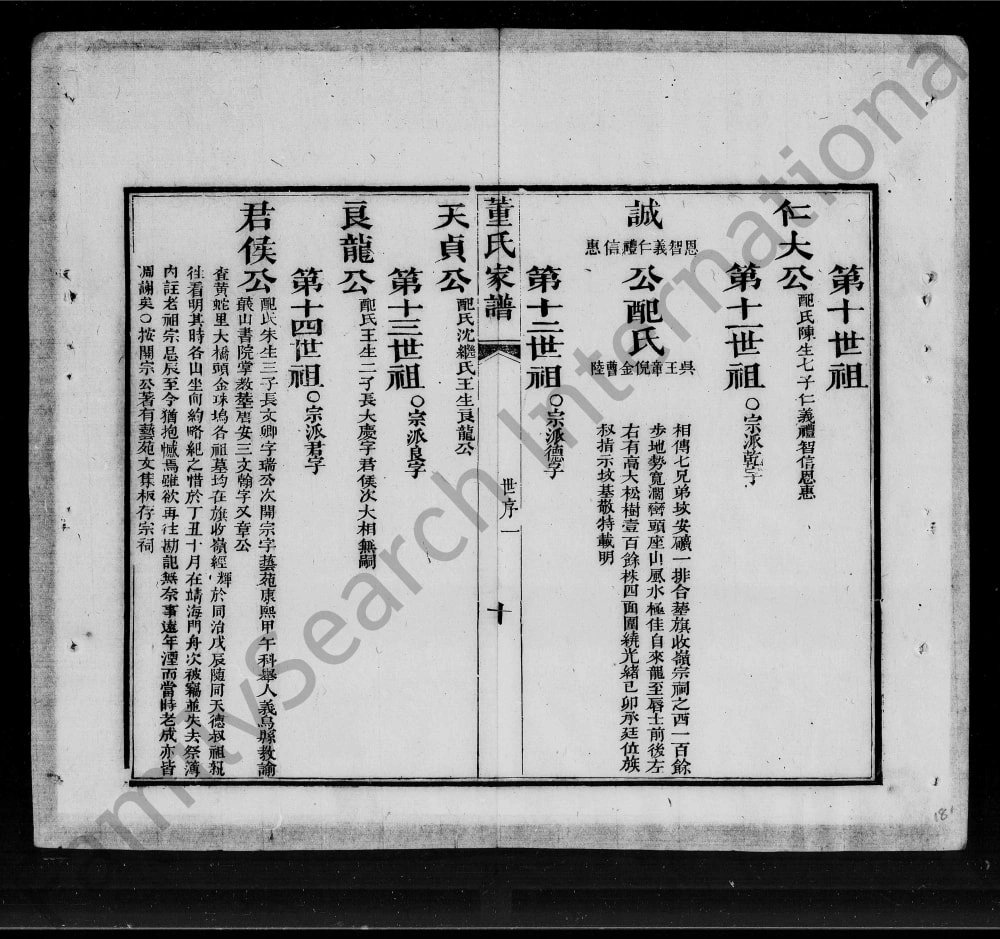 第十世祖
仁大公 配氏陳生七子仁義禮智信恩惠
第十一世祖 ○宗派乾字
誠 恩智義仁禮信惠 公配氏 吳王韋倪金曹陸
相傳七兄弟坟安礦一排合塟旗收嶺宗祠之西一百餘
步地勢寬濶巒頭座山風水極佳自來龍至唇土前後左
右有高大松樹壹百餘株四面圍繞光緒己卯承廷位族
叔指示坟墓敬特載明
第十二世祖 ○宗派德字
董氏家譜 世序一 十
天貞公 配氏沈繼氏王生良龍公
第十三世祖 ○宗派良字
良龍公 配氏王生二子長大慶字君侯次大相無嗣
第十四世祖 ○宗派君字
君侯公 配氏朱生三子長文卿字瑞公次開宗字藝苑康熙甲午科舉人義烏縣教諭
蕺山書院掌教塟唐安三文翰字又章公
查黃蛇里大橋頭金珠塢各祖墓均在旗收嶺經輝於同治戊辰隨同天德叔祖親
徃看明其時各山坐向約略紀之惜於丁丑十月在靖海門舟次被竊並失去祭簿
內註老祖宗忌辰至今猶抱憾焉雖欲再往勘記無奈事遠年湮而當時老成亦皆
凋謝矣○按開宗公著有藝苑文集板存宗祠
181
FamilySearch International